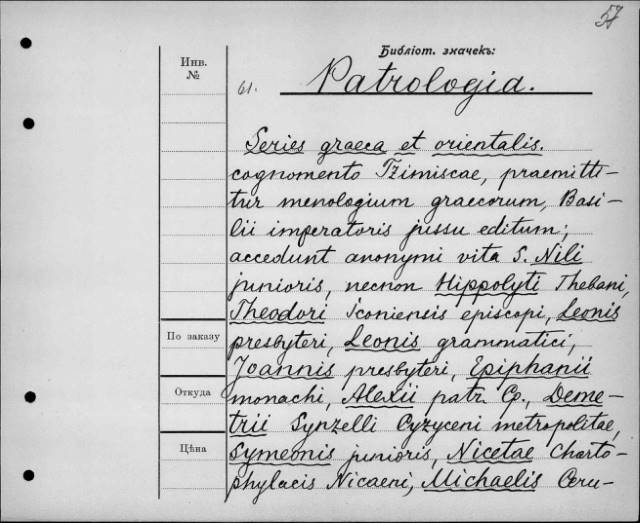 57
Библіот. значекъ:
Инв.
№
61.
Patrologia.
Series graeca et orientalis.
cognomento Tzimiscae, praemitti-
tur menologium graecorum, Basi-
lii imperatoris jussu editum;
accedunt anonymi vita S. Nili
junioris, necnon Hippolyti Thebani,
Theodori Iconiensis episcopi, Leonis
По заказу
presbyteri, Leonis grammatici;
Joannis presbyteri, Epiphanii
Откуда
monachi, Alexii patr. Cp., Deme-
trii Synzelli Cyzyceni metropolitae,
Цѣна
Symeonis junioris, Nicetae Charto-
phylacis Nicaeni, Michaelis Ceru-